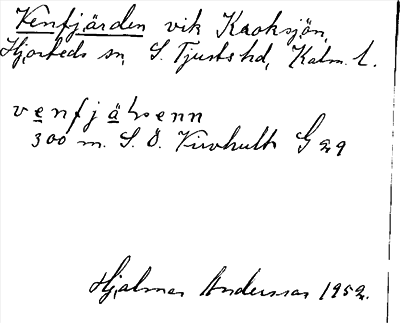 Venfjärden vik Kroksjön,
Hjorteds sn, S. Tjusts hd, Kalm. l.
venfjäḷenn
300 m. S. Ö. Virhult G 29
Hjalmar Andersson 1952.